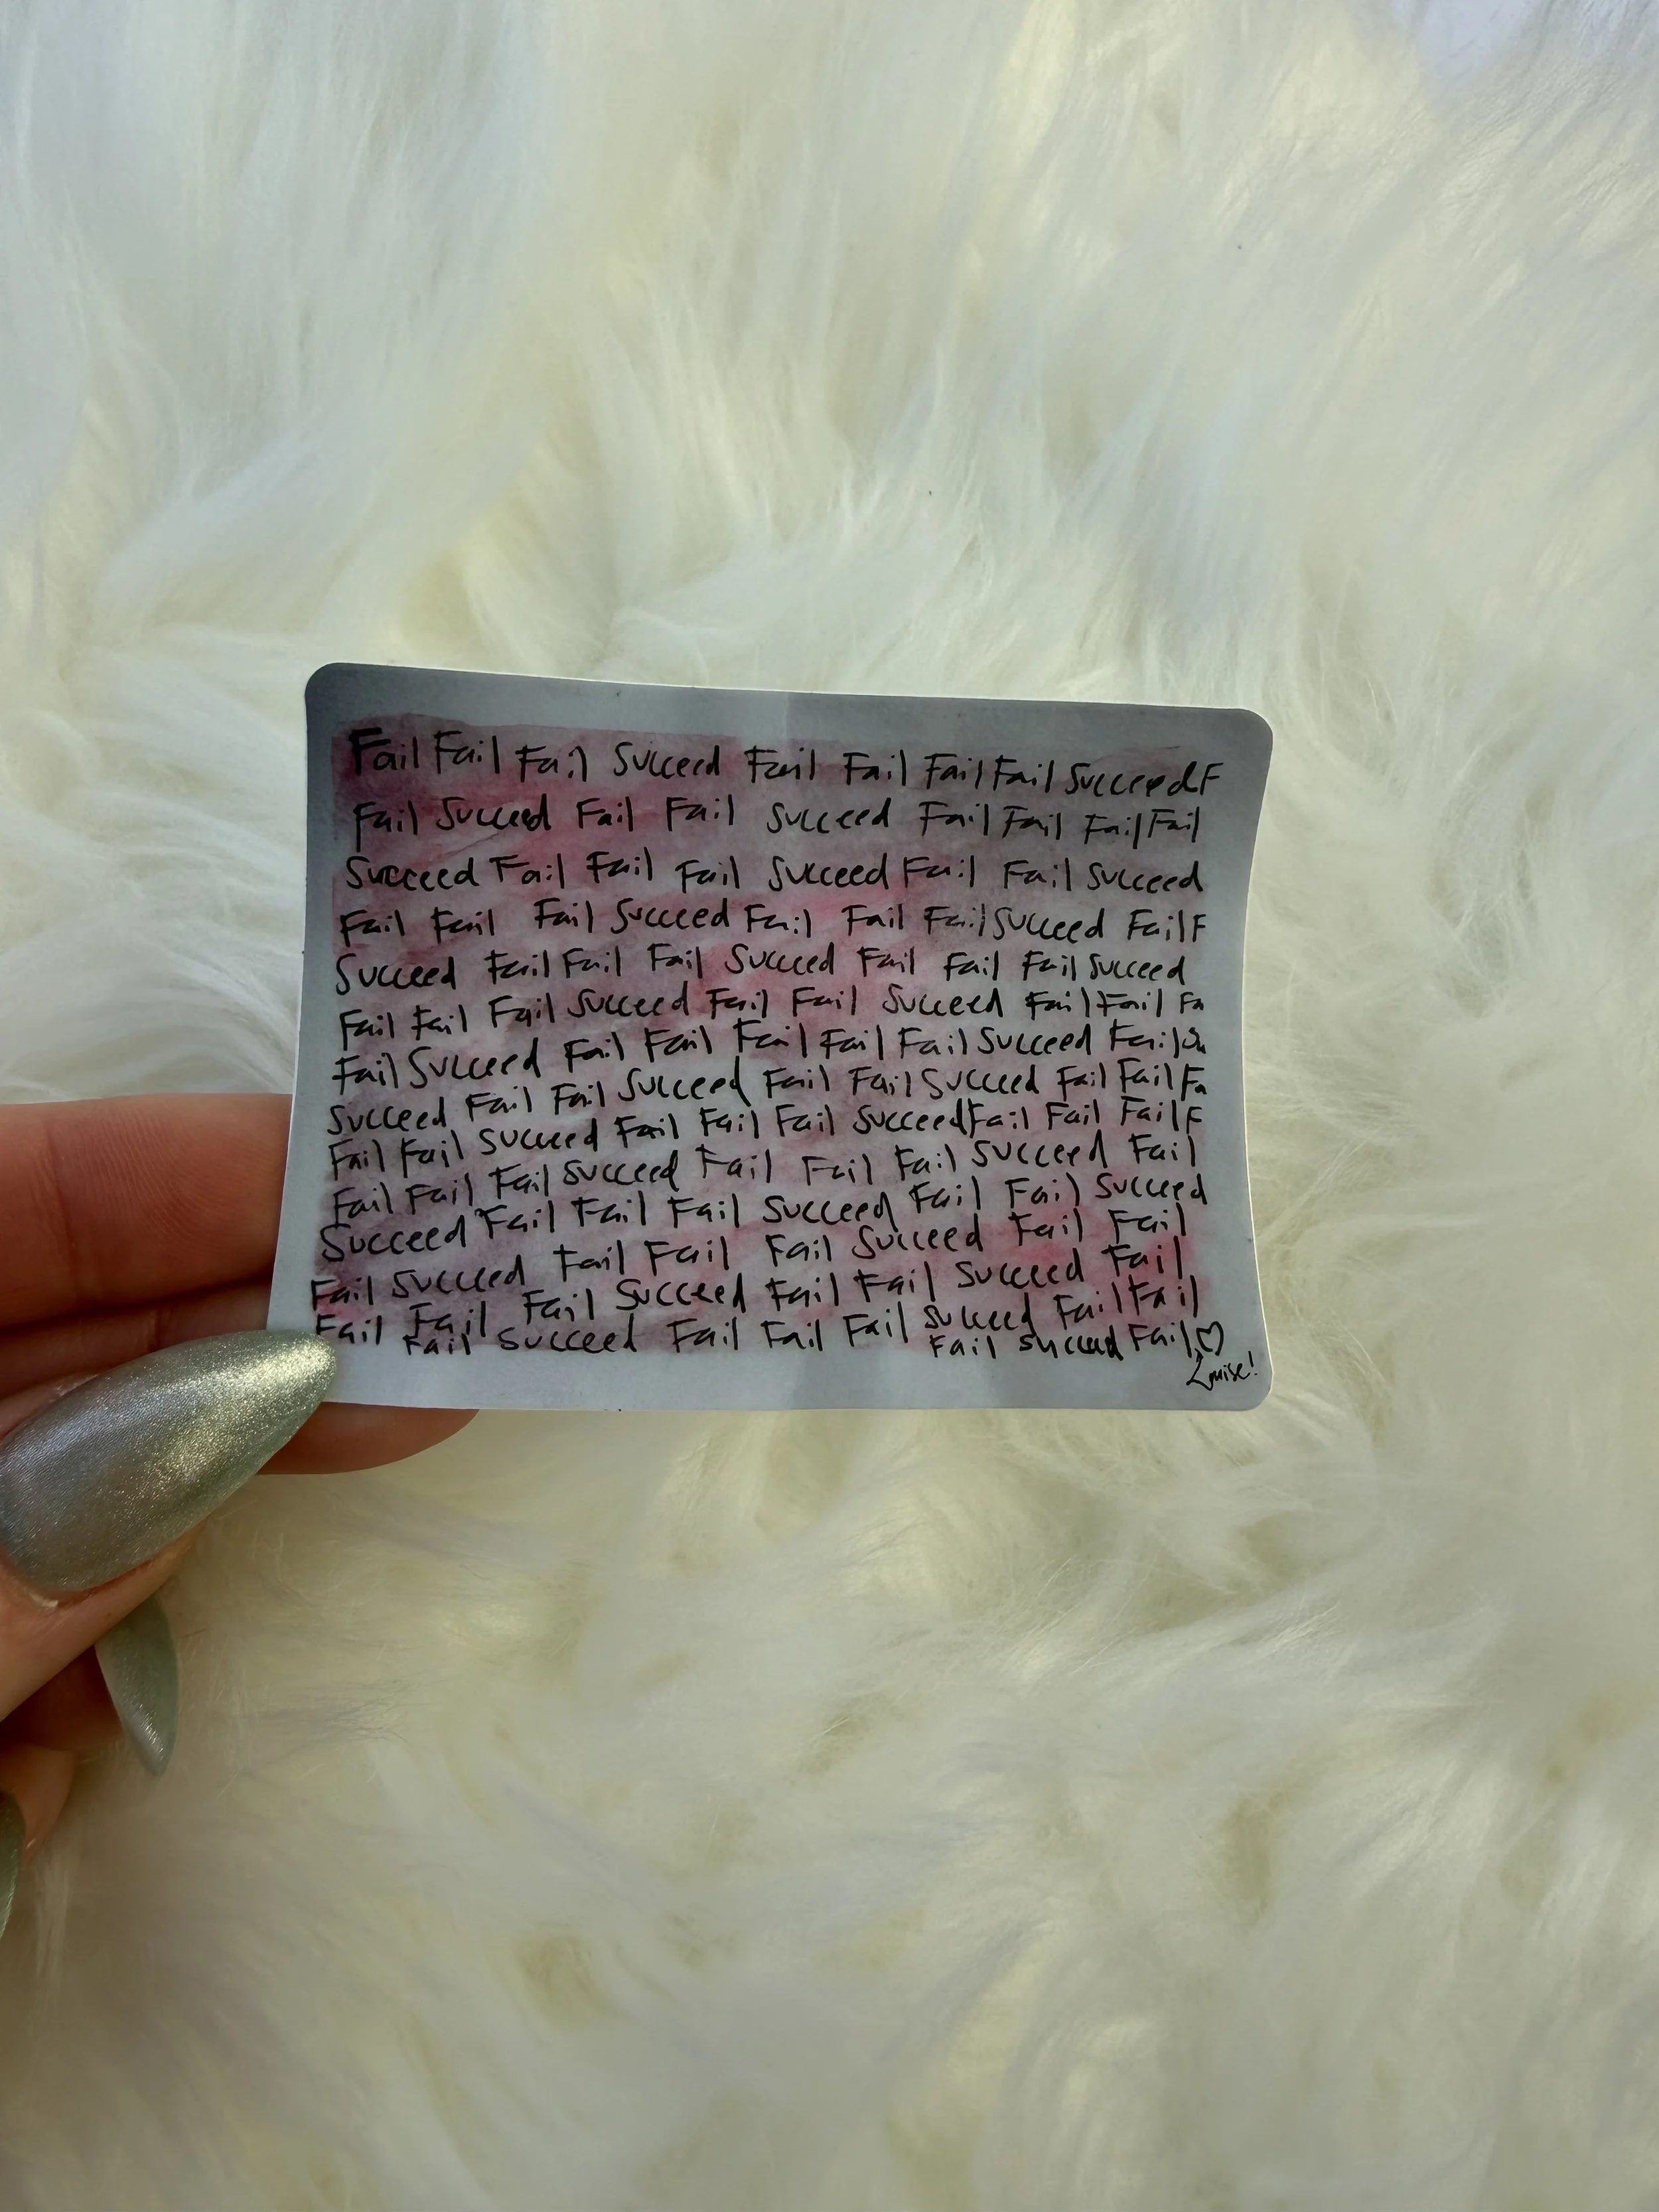 Fail Fail Fail Succeed Fail Fail Fail Fail Succeed F
Fail Succeed Fail Fail Succeed Fail Fail Fail Fail
Succeed Fail Fail Fail Succeed Fail Fail Succeed
Fail Fail Fail Succeed Fail Fail Fail Succeed Fail F
Succeed Fail Fail Fail Succeed Fail Fail Fail Succeed
Fail Fail Fail Succeed Fail Fail Succeed Fail Fail Fa
Fail Succeed Fail Fail Fail Fail Fail Succeed Fail Su
Succeed Fail Fail Succeed Fail Fail Succeed Fail Fail Fa
Fail Fail Succeed Fail Fail Fail Succeed Fail Fail Fail F
Fail Fail Fail Succeed Fail Fail Fail Succeed Fail
Succeed Fail Fail Fail Succeed Fail Fail Succeed
Fail Succeed Fail Fail Fail Succeed Fail Fail
Fail Fail Fail Succeed Fail Fail Succeed Fail
Fail Succeed Fail Fail Fail Succeed Fail Fail
Fail Succeed Fail ♡
Louise!